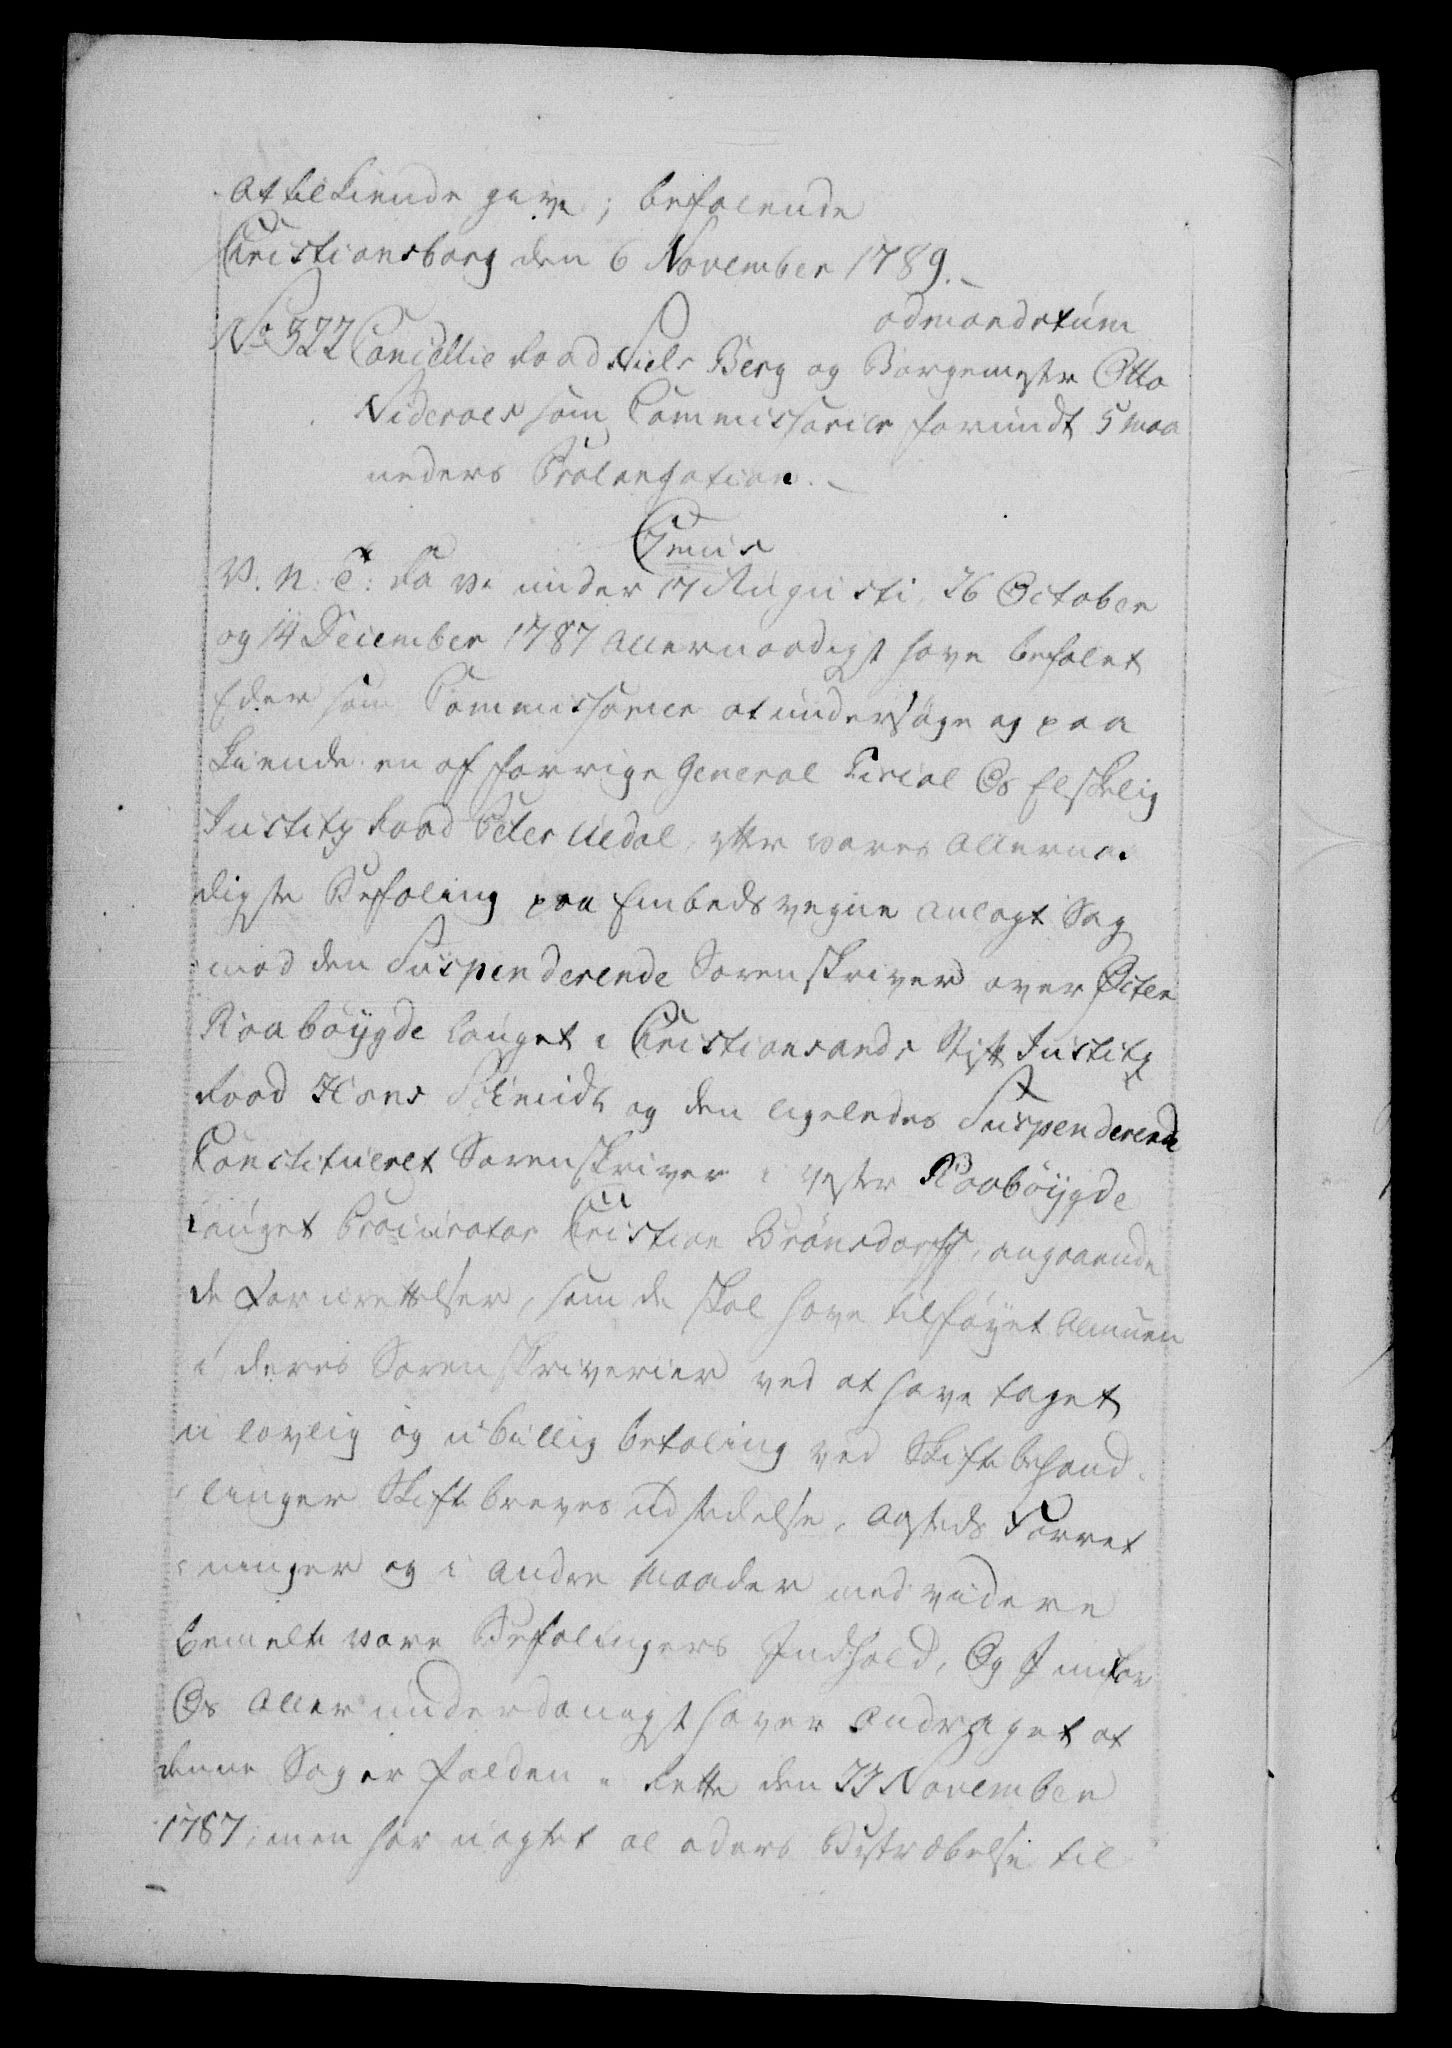 at tilkiende give; befalende
Christiansborg den 6 November 1789.
admandatum
No 322 Cancellie Raad Niels Berg og Borgemester Otto
Nideroes som Commissarier forundt 5 maa
neders Prolongation.
C 7mus
V. N. T: Da Vi under 17 Augusti, 26 October
og 14 December 1787 allernaadigst have befalet
Eder som Commissarier at undersøge og paa
kiende en af forrige General Fiscal Os Elskelig
Justitz Raad Peter Uldal, efter vores allerna
digste Befaling paa Embeds vegne anlagt Sag
mod den Suspenderende Sorenskriver over Øster
Raabøygde lauget i Christiansands Stift Justitz
Raad Hans Smidt og den ligeledes Suspenderende
Constitueret Sorenskriver i Vester Raabøygde
lauget Procurator Christian Brønsdorff, angaaende
de Forurettelser, som de skal have tilføyet Almuen
i deres Sorenskriverier ved at have taget
ulovlig og ubillig betaling ved Skifte behand
linger Skiftebreves udstædelse, Aasteds Forret
ninger og i andre Maader med videre
bemelte vore Befalingers Indhold, Og I nu for
Os allerunderdanigst haver andraget at
denne Sag er falden i Rette den 23 November
1787, men har uagtet al eders Bestræbelse til